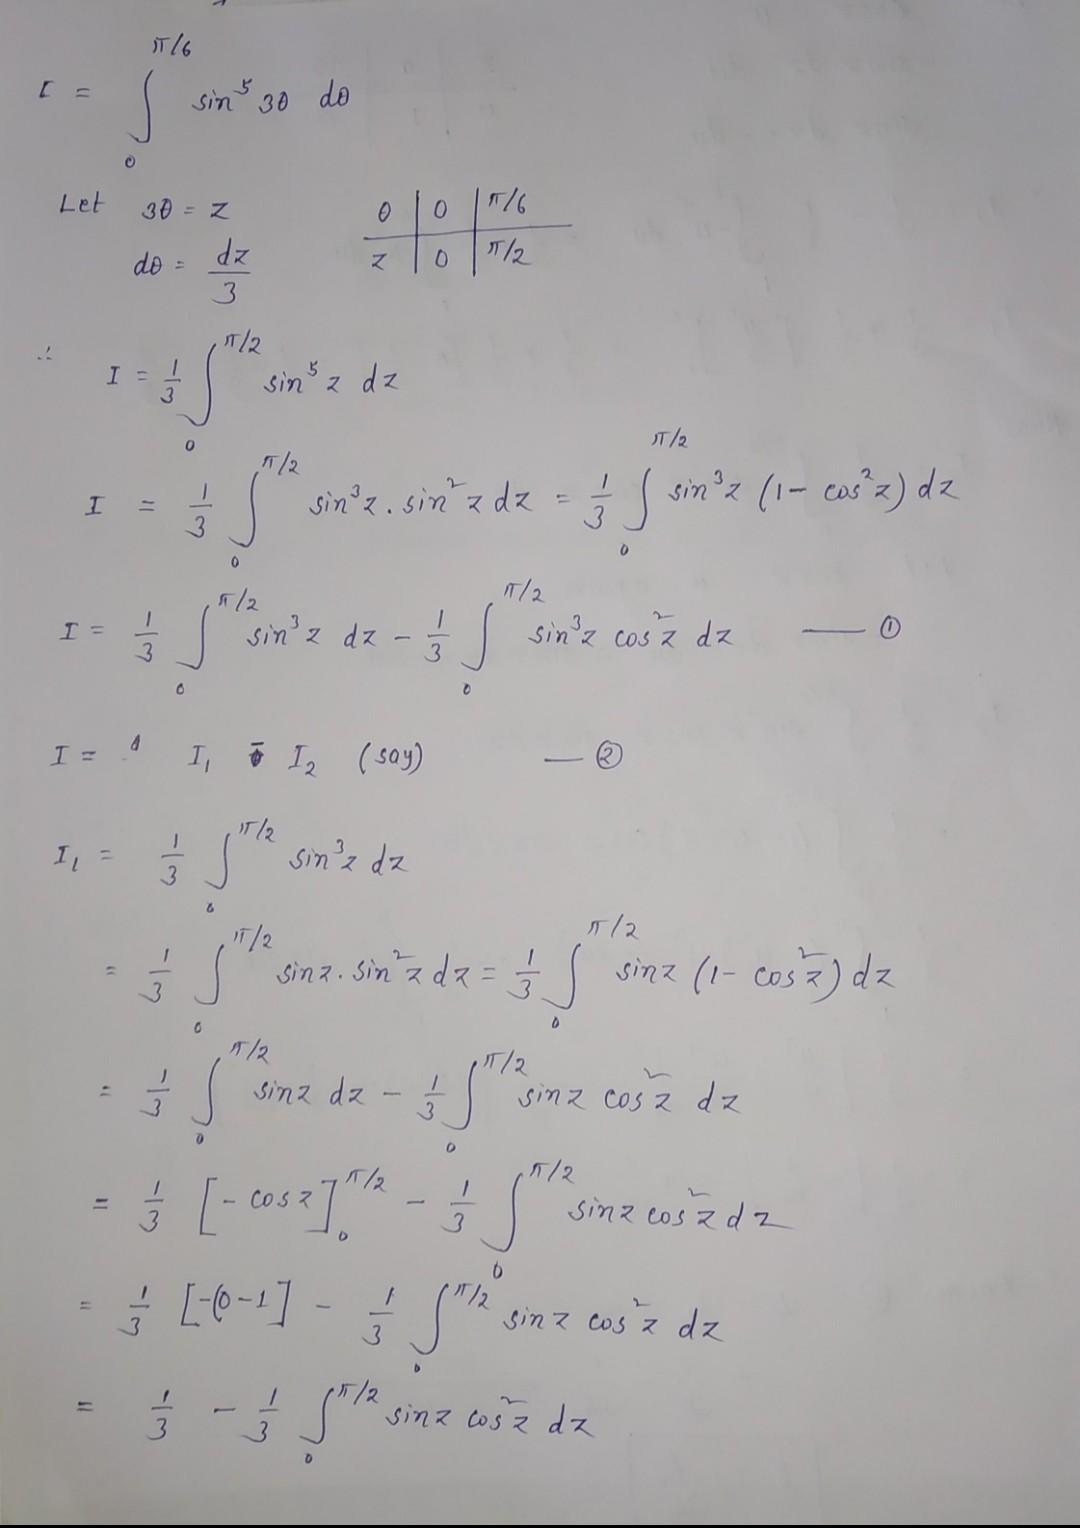 I = ∫₀^{π/6} sin⁵ 3θ dθ
Let 3θ = z θ | 0 | π/6
dθ = dz/3 z | 0 | π/2
∴ I = 1/3 ∫₀^{π/2} sin⁵ z dz
I = 1/3 ∫₀^{π/2} sin³z . sin²z dz = 1/3 ∫₀^{π/2} sin³z (1 - cos²z) dz
I = 1/3 ∫₀^{π/2} sin³z dz - 1/3 ∫₀^{π/2} sin³z cos²z dz — ①
I = I₁ - I₂ (say) — ②
I₁ = 1/3 ∫₀^{π/2} sin³z dz
= 1/3 ∫₀^{π/2} sinz . sin²z dz = 1/3 ∫₀^{π/2} sinz (1 - cos²z) dz
= 1/3 ∫₀^{π/2} sinz dz - 1/3 ∫₀^{π/2} sinz cos²z dz
= 1/3 [- cosz]₀^{π/2} - 1/3 ∫₀^{π/2} sinz cos²z dz
= 1/3 [-(0-1] - 1/3 ∫₀^{π/2} sinz cos²z dz
= 1/3 - 1/3 ∫₀^{π/2} sinz cos²z dz